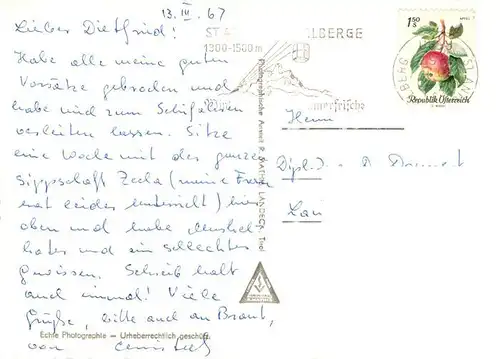 13. III. 67
Lieber Dietfried!
Habe alle meine guten
Vorsätze gebrochen und
habe mich zum Schifahren
verleiten lassen. Sitze
eine Woche mit der ganzen
Sippschaft (meine Frau
hat leider Unterricht) hier
oben und habe Muskel-
kater und ein schlechtes
Gewissen. Schreib halt
auch einmal! Viele
Grüße, bitte auch an Braut,
von
Echte Photographie – Urheberrechtlich geschützt
ST A LBERGE
1300-1500 m
merfrische
1.50
S
APFEL
Republik Österreich
BERG ST AN
Photographische Anstalt R. MATHIS, LANDECK, Tirol
Herrn
Dipl.